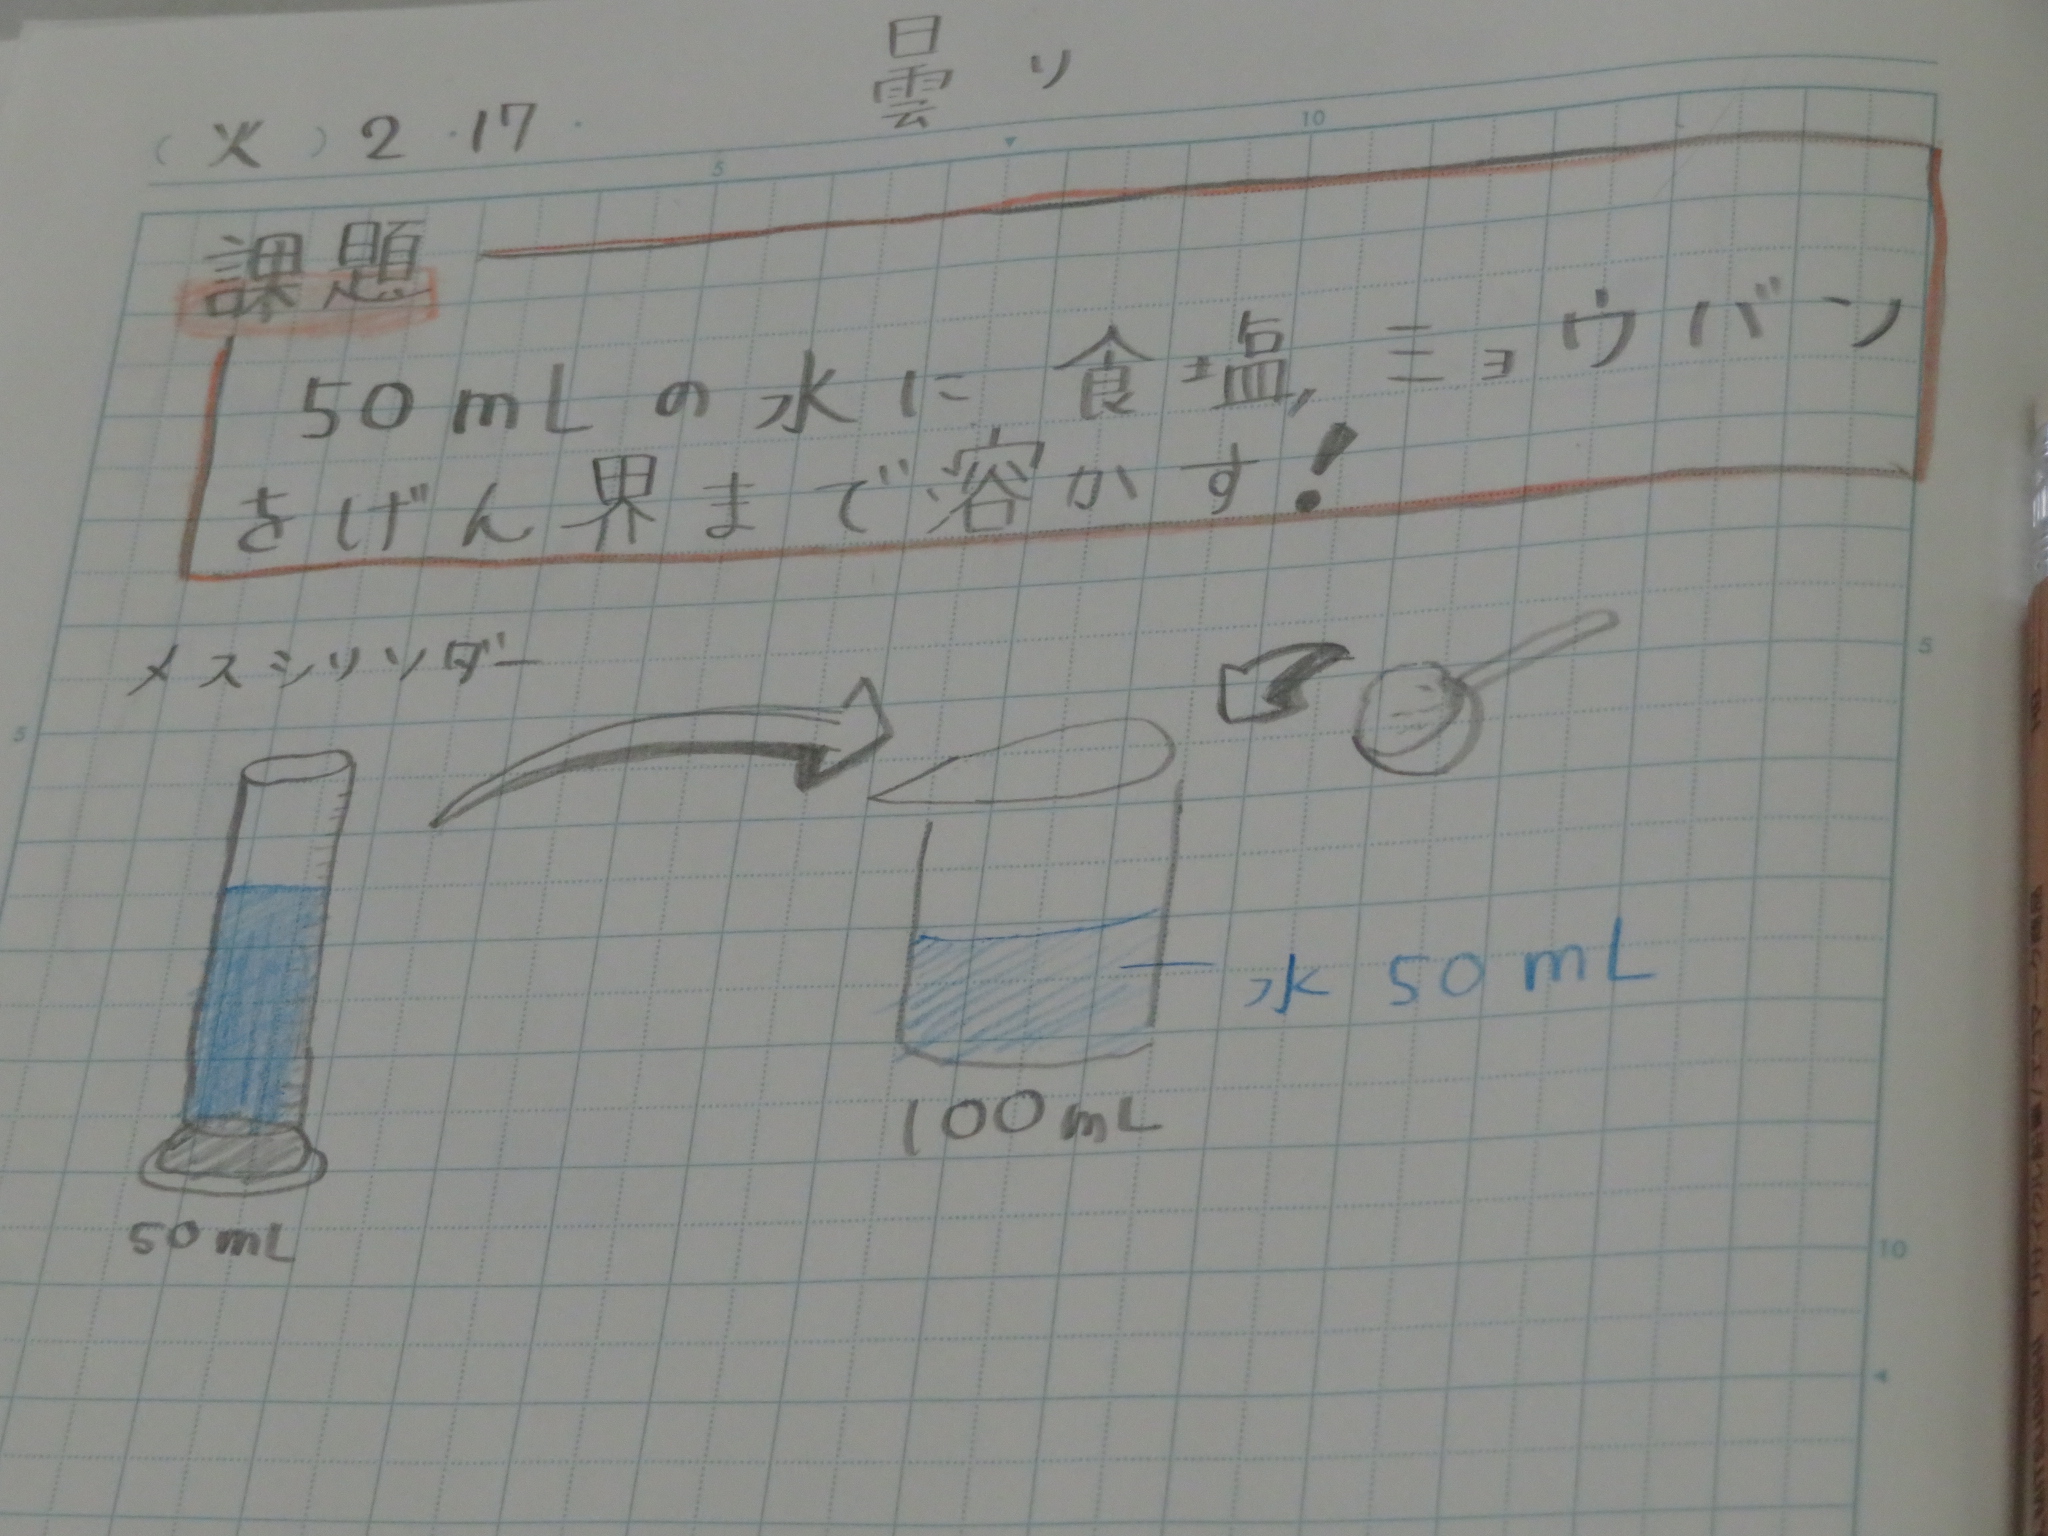 (火) 2.17. 曇り
課題
50mLの水に食塩,ミョウバン
をげん界まで溶かす!
メスシリンダー
水 50mL
100mL
50mL
5
10
5
5
10